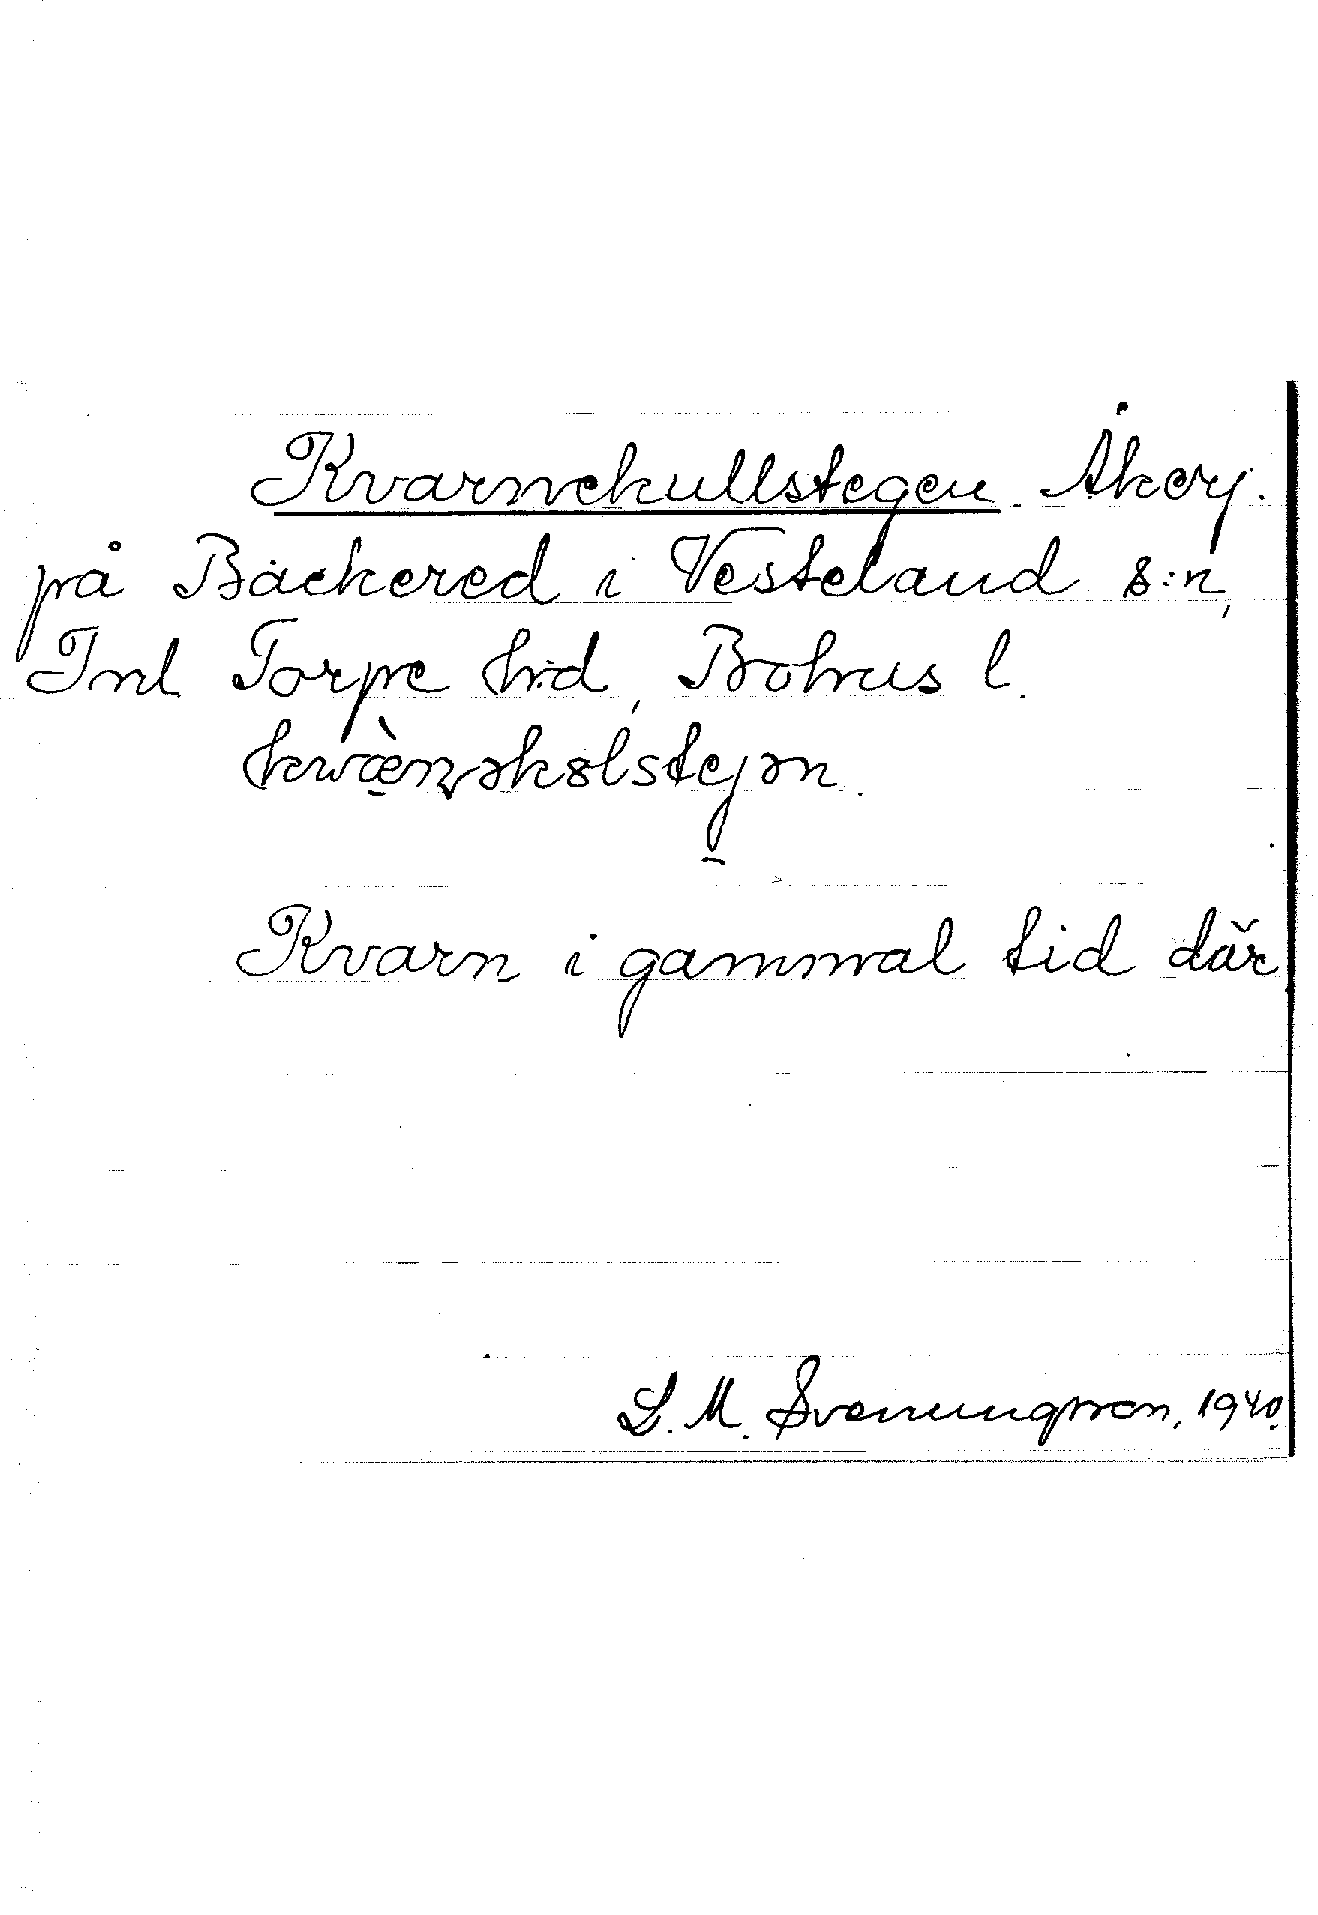 Kvarnekullstegen. Åkerj.
på Bäckered i Vesteland s:n,
Inl Torpe hrd, Bohus l.
kwæ̀ɳəkɵlstejən.
Kvarn i gammal tid där
S. M. Svenungsson, 1940.